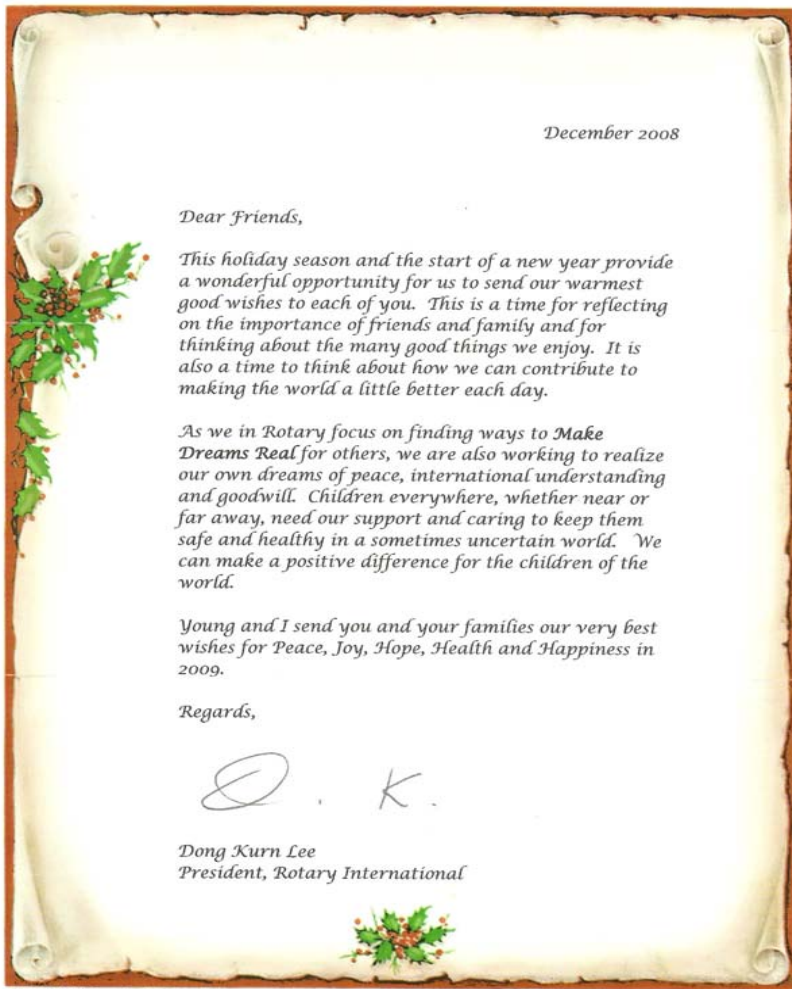 December 2008
Dear Friends,
This holiday season and the start of a new year provide
a wonderful opportunity for us to send our warmest
good wishes to each of you. This is a time for reflecting
on the importance of friends and family and for
thinking about the many good things we enjoy. It is
also a time to think about how we can contribute to
making the world a little better each day.
As we in Rotary focus on finding ways to Make
Dreams Real for others, we are also working to realize
our own dreams of peace, international understanding
and goodwill. Children everywhere, whether near or
far away, need our support and caring to keep them
safe and healthy in a sometimes uncertain world. We
can make a positive difference for the children of the
world.
Young and I send you and your families our very best
wishes for Peace, Joy, Hope, Health and Happiness in
2009.
Regards,
D. K.
Dong Kurn Lee
President, Rotary International